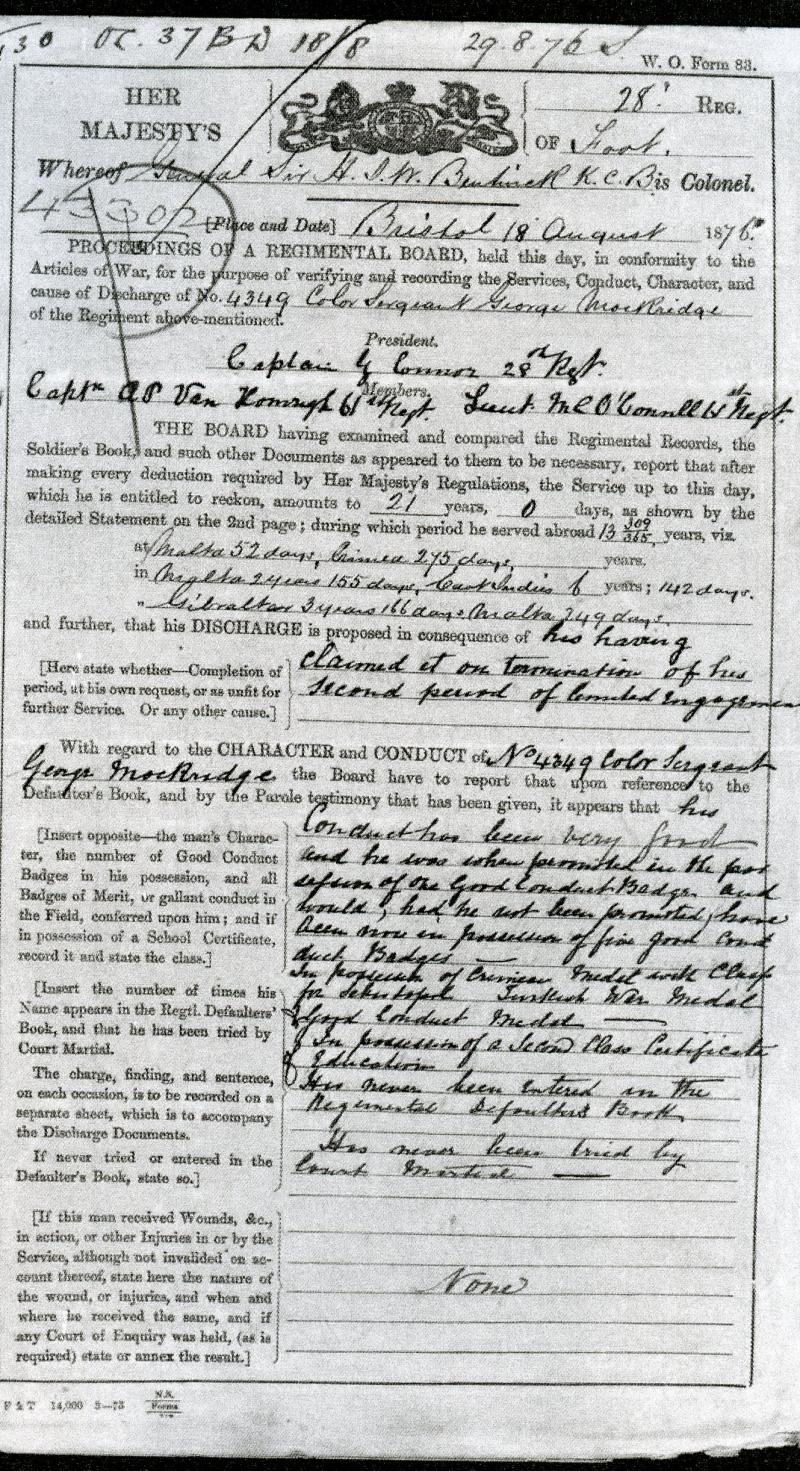 30 OC. 37 BD 18/8 29.8.76
W. O. Form 83.
HER
MAJESTY'S
28th REG.
OF Foot.
Whereof General Sir H. J. W. Bentinck K.C.B is Colonel.
43302
[Place and Date] Bristol 18 August 1876.
PROCEEDINGS OF A REGIMENTAL BOARD, held this day, in conformity to the
Articles of War, for the purpose of verifying and recording the Services, Conduct, Character, and
cause of Discharge of No. 4349 Color Sergeant George Mockridge
of the Regiment above-mentioned.
President.
Captain G Connor 28th Regt.
Members.
Captn AP Van Homrigh 61st Regt. Lieut. M C O'Connell 61st Regt.
THE BOARD having examined and compared the Regimental Records, the
Soldier's Book, and such other Documents as appeared to them to be necessary, report that after
making every deduction required by Her Majesty's Regulations, the Service up to this day,
which he is entitled to reckon, amounts to 21 years, 0 days, as shown by the
detailed Statement on the 2nd page; during which period he served abroad 13 309/365 years, viz.
at Malta 52 days, Crimea 275 days, years.
in Malta 2 years 155 days, East Indies 6 years; 142 days.
" Gibraltar 3 years 166 days, Malta 249 days.
and further, that his DISCHARGE is proposed in consequence of his having
[Here state whether—Completion of
period, at his own request, or as unfit for
further Service. Or any other cause.]
claimed it on termination of his
second period of limited Engagemen
With regard to the CHARACTER and CONDUCT of No 4349 Color Sergeant
George Mockridge the Board have to report that upon reference to the
Defaulter's Book, and by the Parole testimony that has been given, it appears that his
[Insert opposite—the man's Charac-
ter, the number of Good Conduct
Badges in his possession, and all
Badges of Merit, or gallant conduct in
the Field, conferred upon him; and if
in possession of a School Certificate,
record it and state the class.]
Conduct has been very good
and he was when promoted in the pos
session of one Good Conduct Badge and
would, had he not been promoted, have
been now in possession of five good Con
duct Badges —
In possession of Crimean Medal with Clasp
for Sebastopol Turkish War Medal
& Good Conduct Medal —
& In possession of a Second Class Certificate
of Education
[Insert the number of times his
Name appears in the Regtl. Defaulters'
Book, and that he has been tried by
Court Martial.
The charge, finding, and sentence,
on each occasion, is to be recorded on a
separate sheet, which is to accompany
the Discharge Documents.
If never tried or entered in the
Defaulter's Book, state so.]
Has never been entered in the
Regimental Defaulters Book
Has never been tried by
Court Martial —
[If this man received Wounds, &c.,
in action, or other Injuries in or by the
Service, although not invalided on ac-
count thereof, state here the nature of
the wound, or injuries, and when and
where he received the same, and if
any Court of Enquiry was held, (as is
required) state or annex the result.]
None
F & T 14,000 3—73 Forms